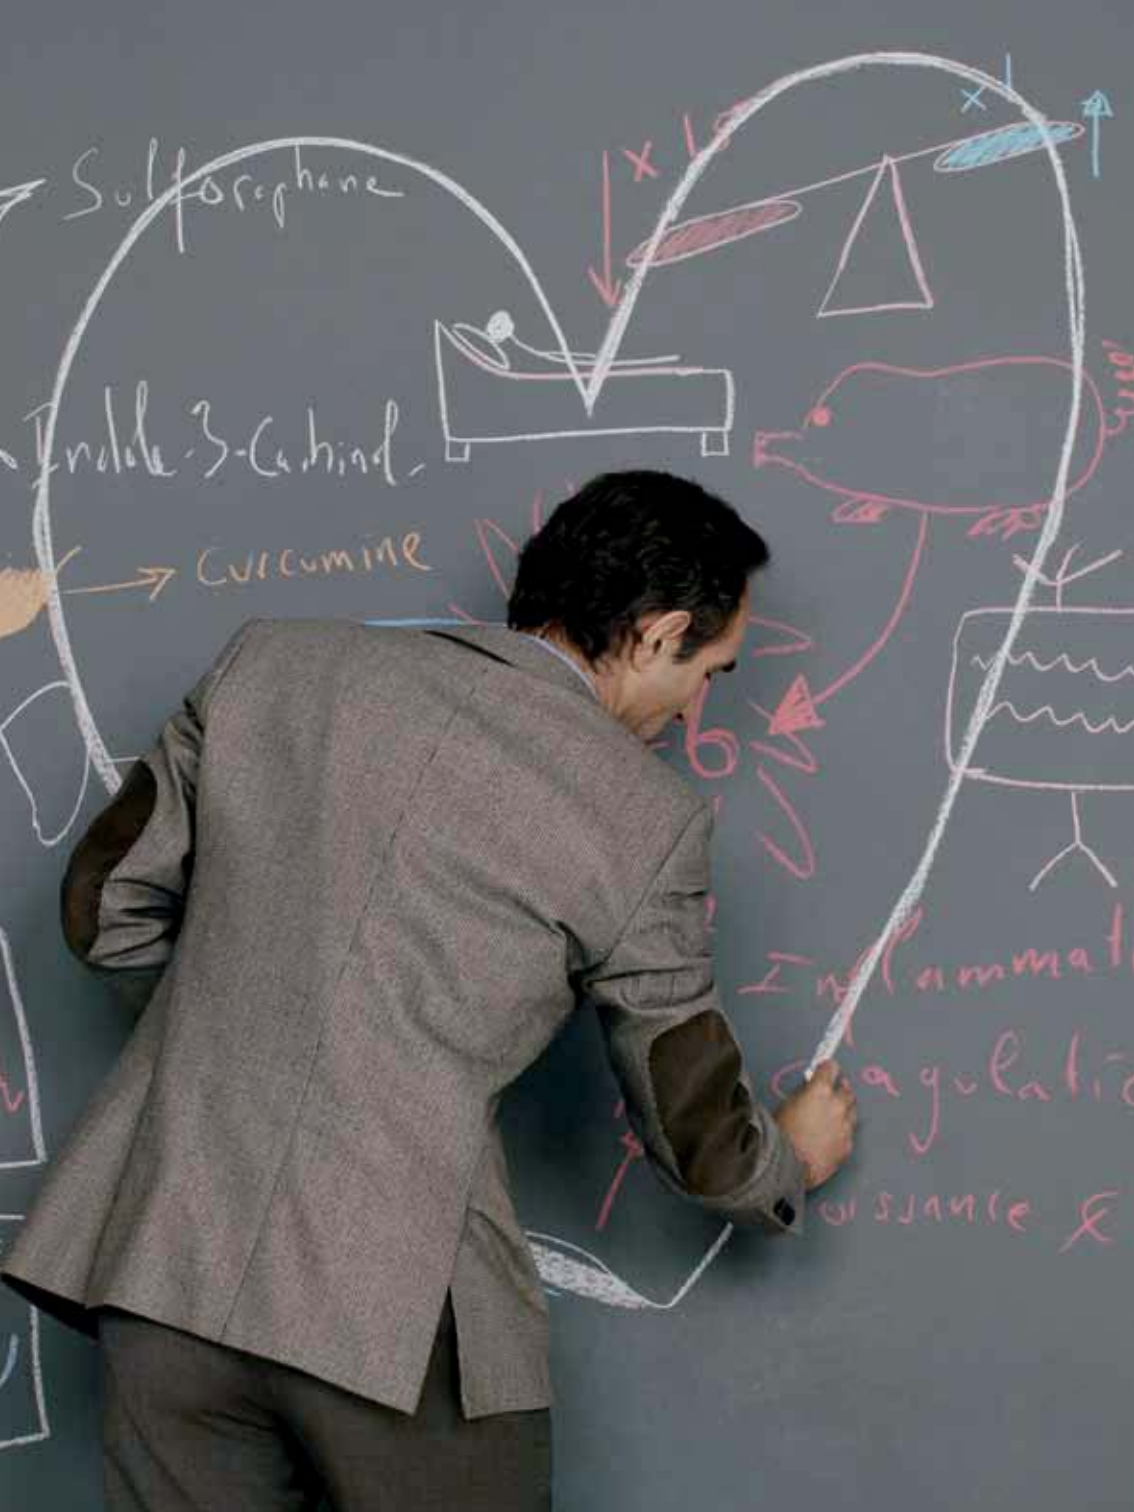 Sulforaphane
x
x
Indole-3-Carbinol.
curcumine
6
Inflammati
coagulatio
oissance &